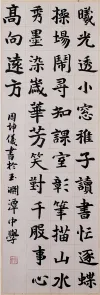 曦光透小窗稚子讀書忙逐雄
操場鬧尋知課堂彰筆描山水
秀墨染歲華芳笑對千般事心
高向遠方
周坤儀書於玉淵潭中學